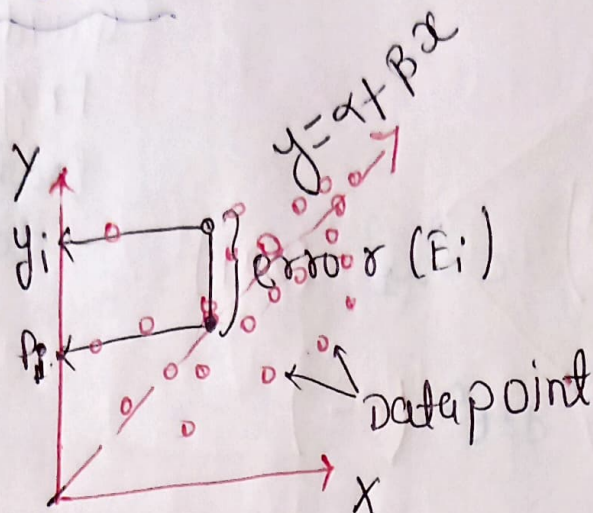 y=α+βx
Y
yi
error (Ei)
Pi
Datapoint
X